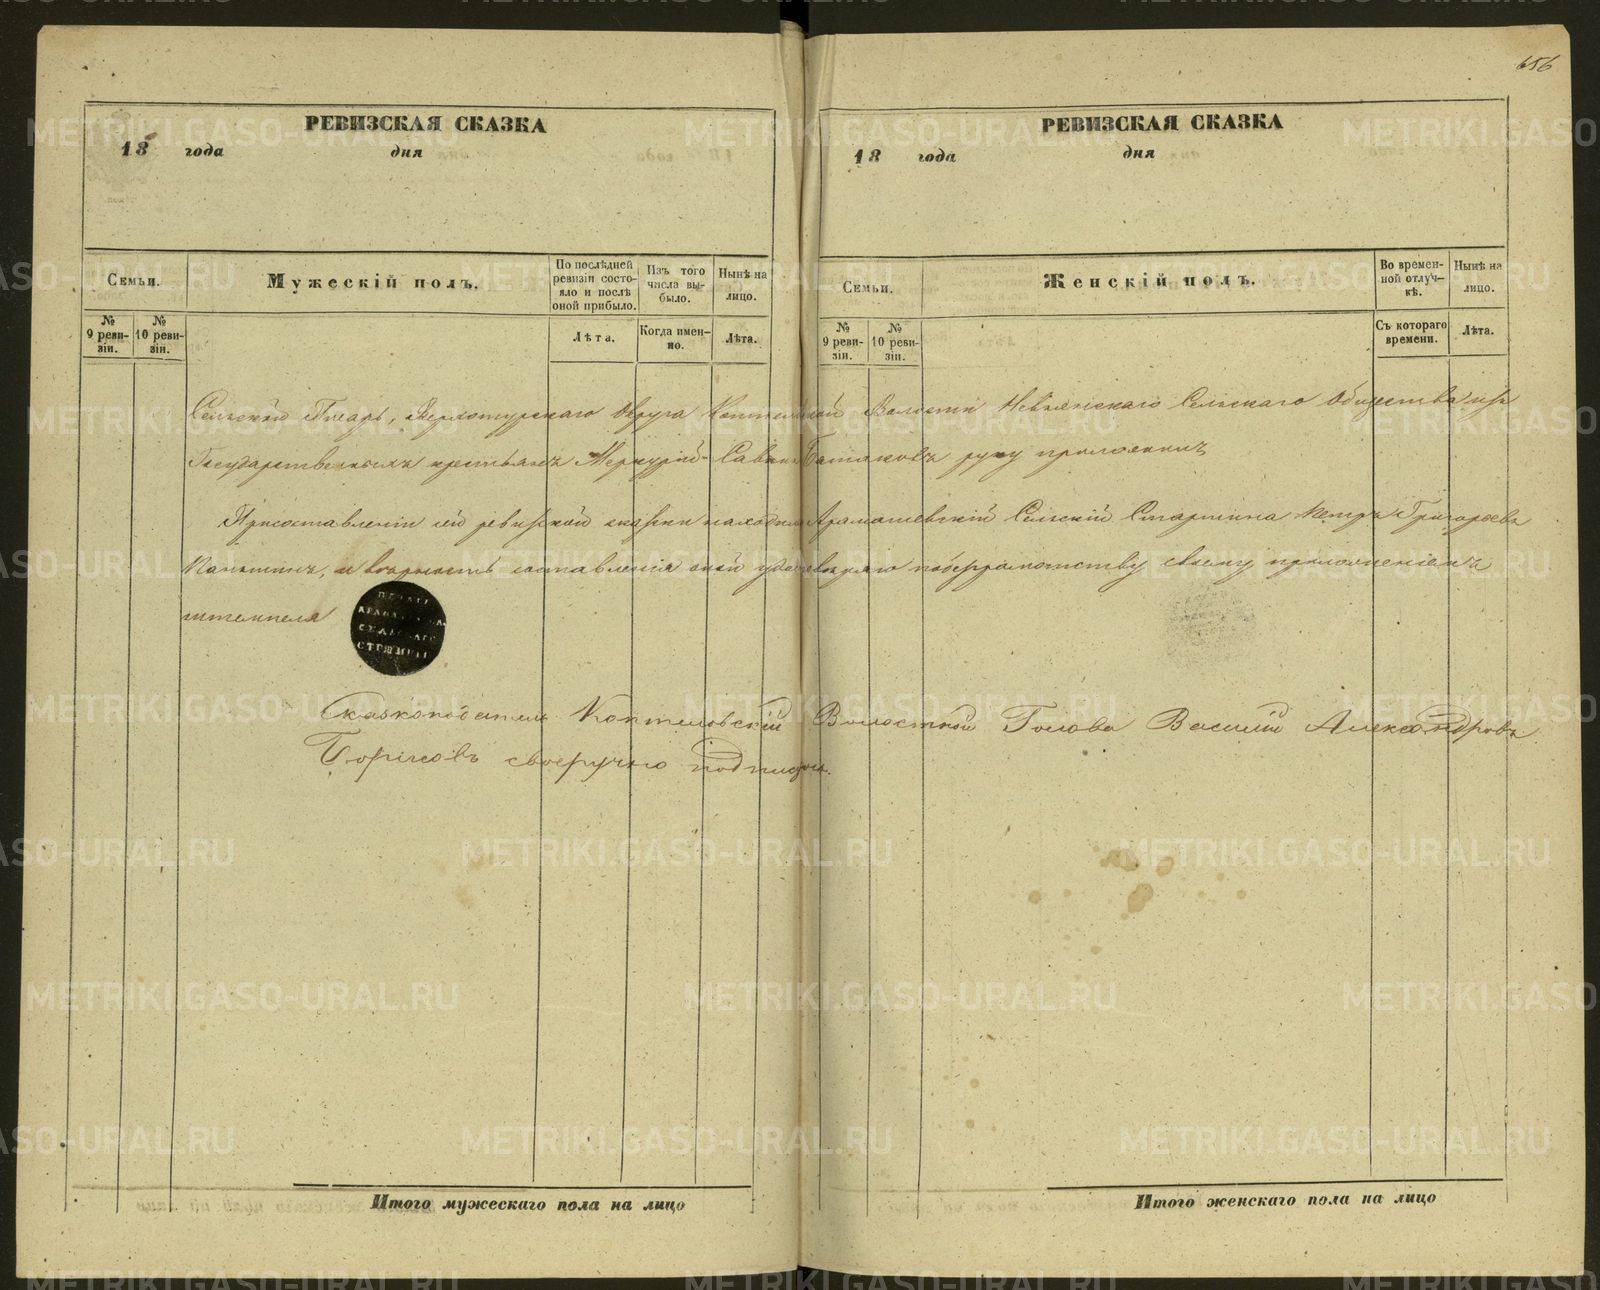 656
РЕВИЗСКАЯ СКАЗКА
18 года дня
Семьи.
Мужескій полъ.
По послѣдней ревизіи состояло и послѣ оной прибыло.
Изъ того числа выбыло.
Нынѣ на лицо.
№ 9 ревизіи.
№ 10 ревизіи.
Лѣта.
Когда именно.
Лѣта.
РЕВИЗСКАЯ СКАЗКА
18 года дня
Семьи.
Женскій полъ.
Во временной отлучкѣ.
Нынѣ на лицо.
№ 9 ревизіи.
№ 10 ревизіи.
Съ котораго времени.
Лѣта.
Сельскій Писарь, Верхотурскаго Округа Коптеловской Волости Невьянскаго Сельскаго Общества изъ
Государственныхъ крестьянъ Меркурій Савинъ руку приложилъ
При составленіи сей ревизской сказки находился Арамашевскій Сельскій Старшина Петръ Григорьевъ
и вѣрность составленія оной удостовѣряю по безграмотству своему приложеніемъ
штемпеля
Сказкоподатель Коптеловскій Волостной Голова Василий Александровъ
Борисовъ своеручно подписался.
Итого мужескаго пола на лицо
Итого женскаго пола на лицо
METRIKI.GASO-URAL.RU